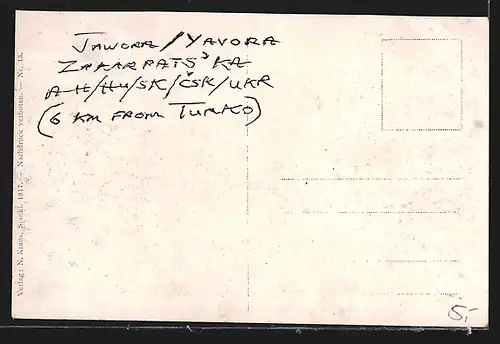 JAWORA/YAVORA
ZAKARPATS'KA
A-H/HU/SK/ČSK/UKR
(6 KM FROM TURKO)
Verlag: N. Kraus, 1917. — Nachdruck verboten. — Nr. 15.
5,-